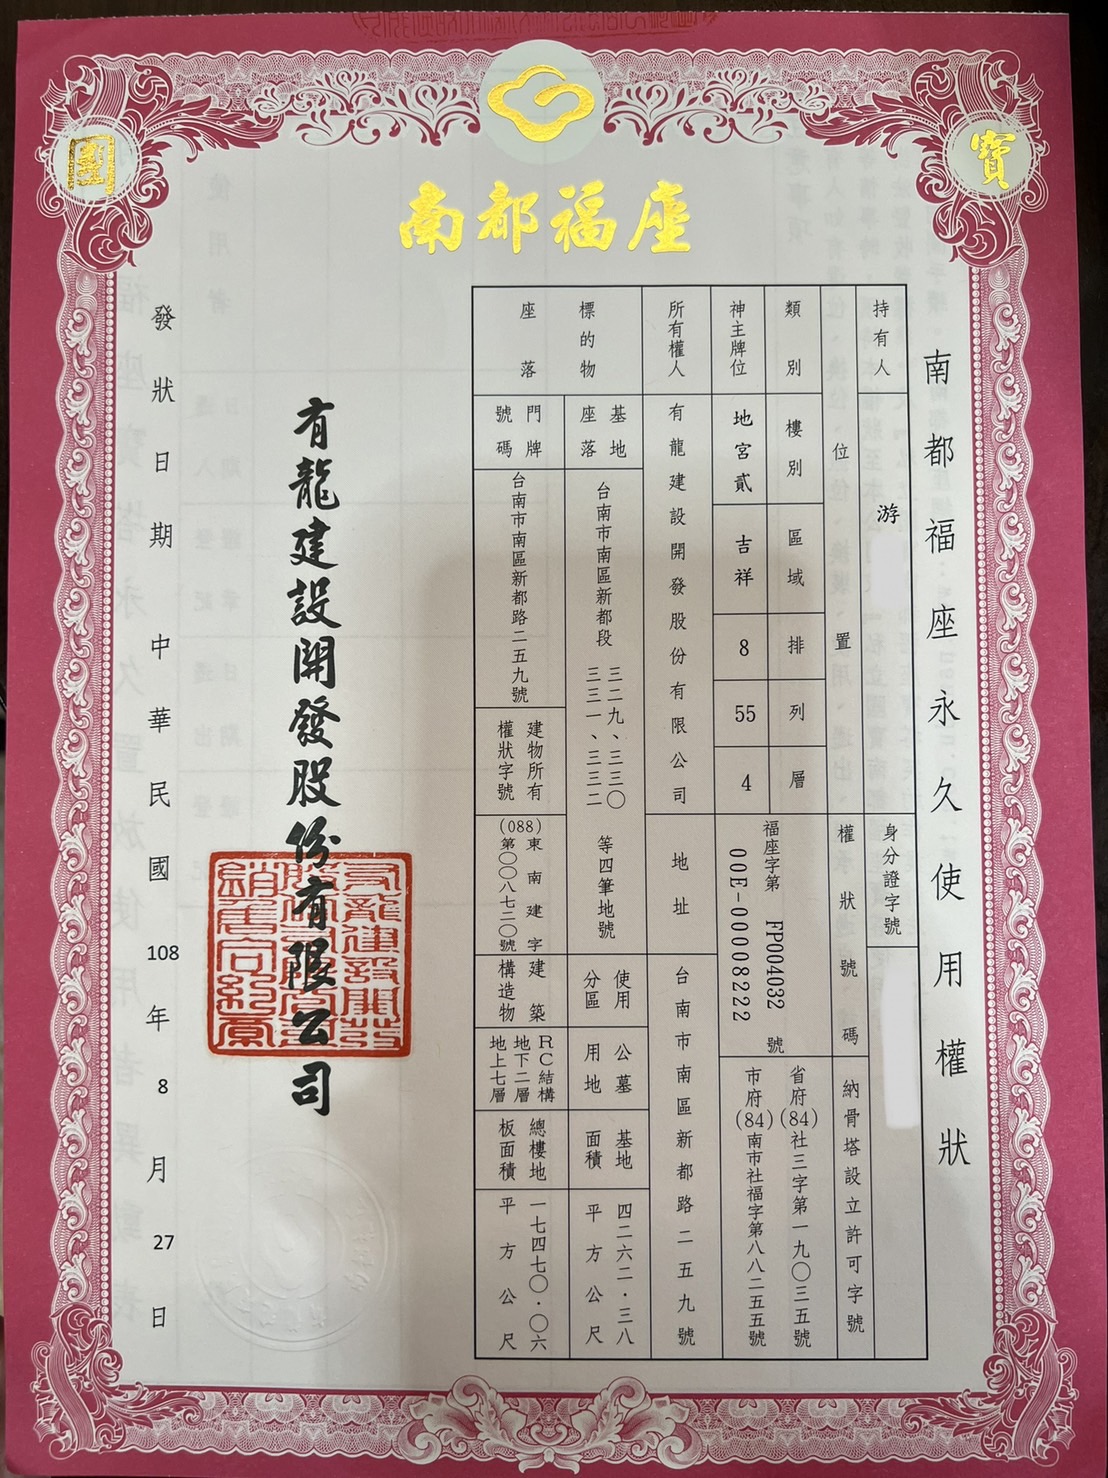 國
寶
南都福座
南都福座永久使用權狀
持有人
游
身分證字號
位置
權狀號碼
納骨塔設立許可字號
類別
樓別
區域
排
列
層
福座字第 FP004032 號
00E-00008222
省府(84)社三字第一九〇三五號
市府(84)南市社福字第八八二五五號
神主牌位
地宮貳
吉祥
8
55
4
所有權人
有龍建設開發股份有限公司
地址
台南市南區新都路二五九號
標的物
座落
基地
座落
台南市南區新都段
三二九、三三〇
三三一、三三二
等四筆地號
使用
分區
公墓
用地
基地
面積
四二六二.三八
平方公尺
門牌
號碼
台南市南區新都路二五九號
建物所有
權狀字號
(088)東南建字
第〇〇八七二〇號
建築
構造物
RC結構
地下二層
地上七層
總樓地
板面積
一七四七〇.〇六
平方公尺
有龍建設開發股份有限公司
發狀日期 中華民國 108 年 8 月 27 日